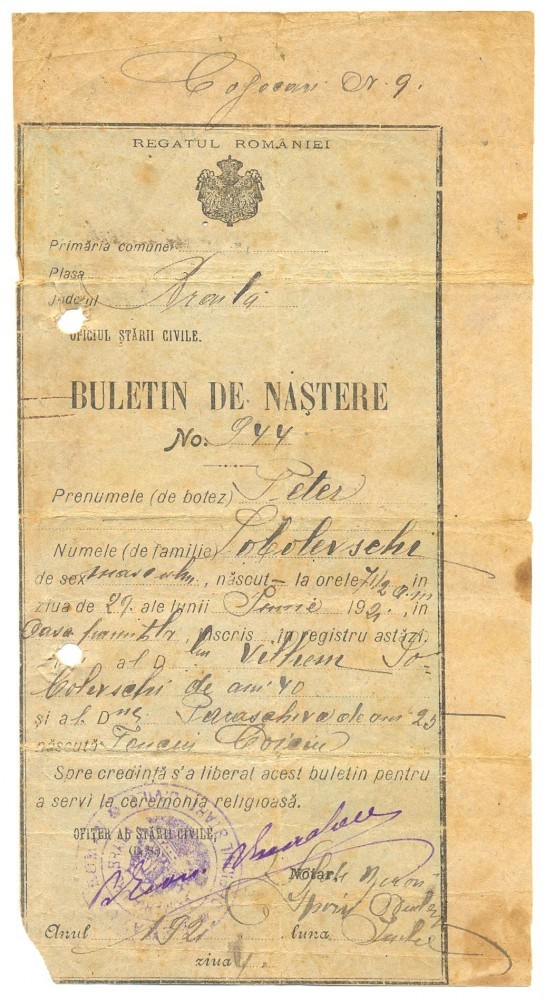 Cojocari Nr. 9.
REGATUL ROMÂNIEI
Primăria comunei
Plasa
Județul Brăila
OFICIUL STĂRII CIVILE.
BULETIN DE NAȘTERE
No. 944
Prenumele (de botez) Peter
Numele (de familie) Sobolevschi
de sex masculin, născut la orele 7 1/2 a.m în
ziua de 29 ale lunii Iunie 1921, în
Casa părintilor, înscris în registru astăzi,
al D lui Vilhem So-
bolevschi de ani 40
și al D nei Paraschiva de ani 25
născută
Spre credință s'a liberat acest buletin pentru
a servi la ceremonia religioasă.
OFIȚER AL STĂRII CIVILE,
Notar,
Anul 1921 luna Iulie
ziua 4.